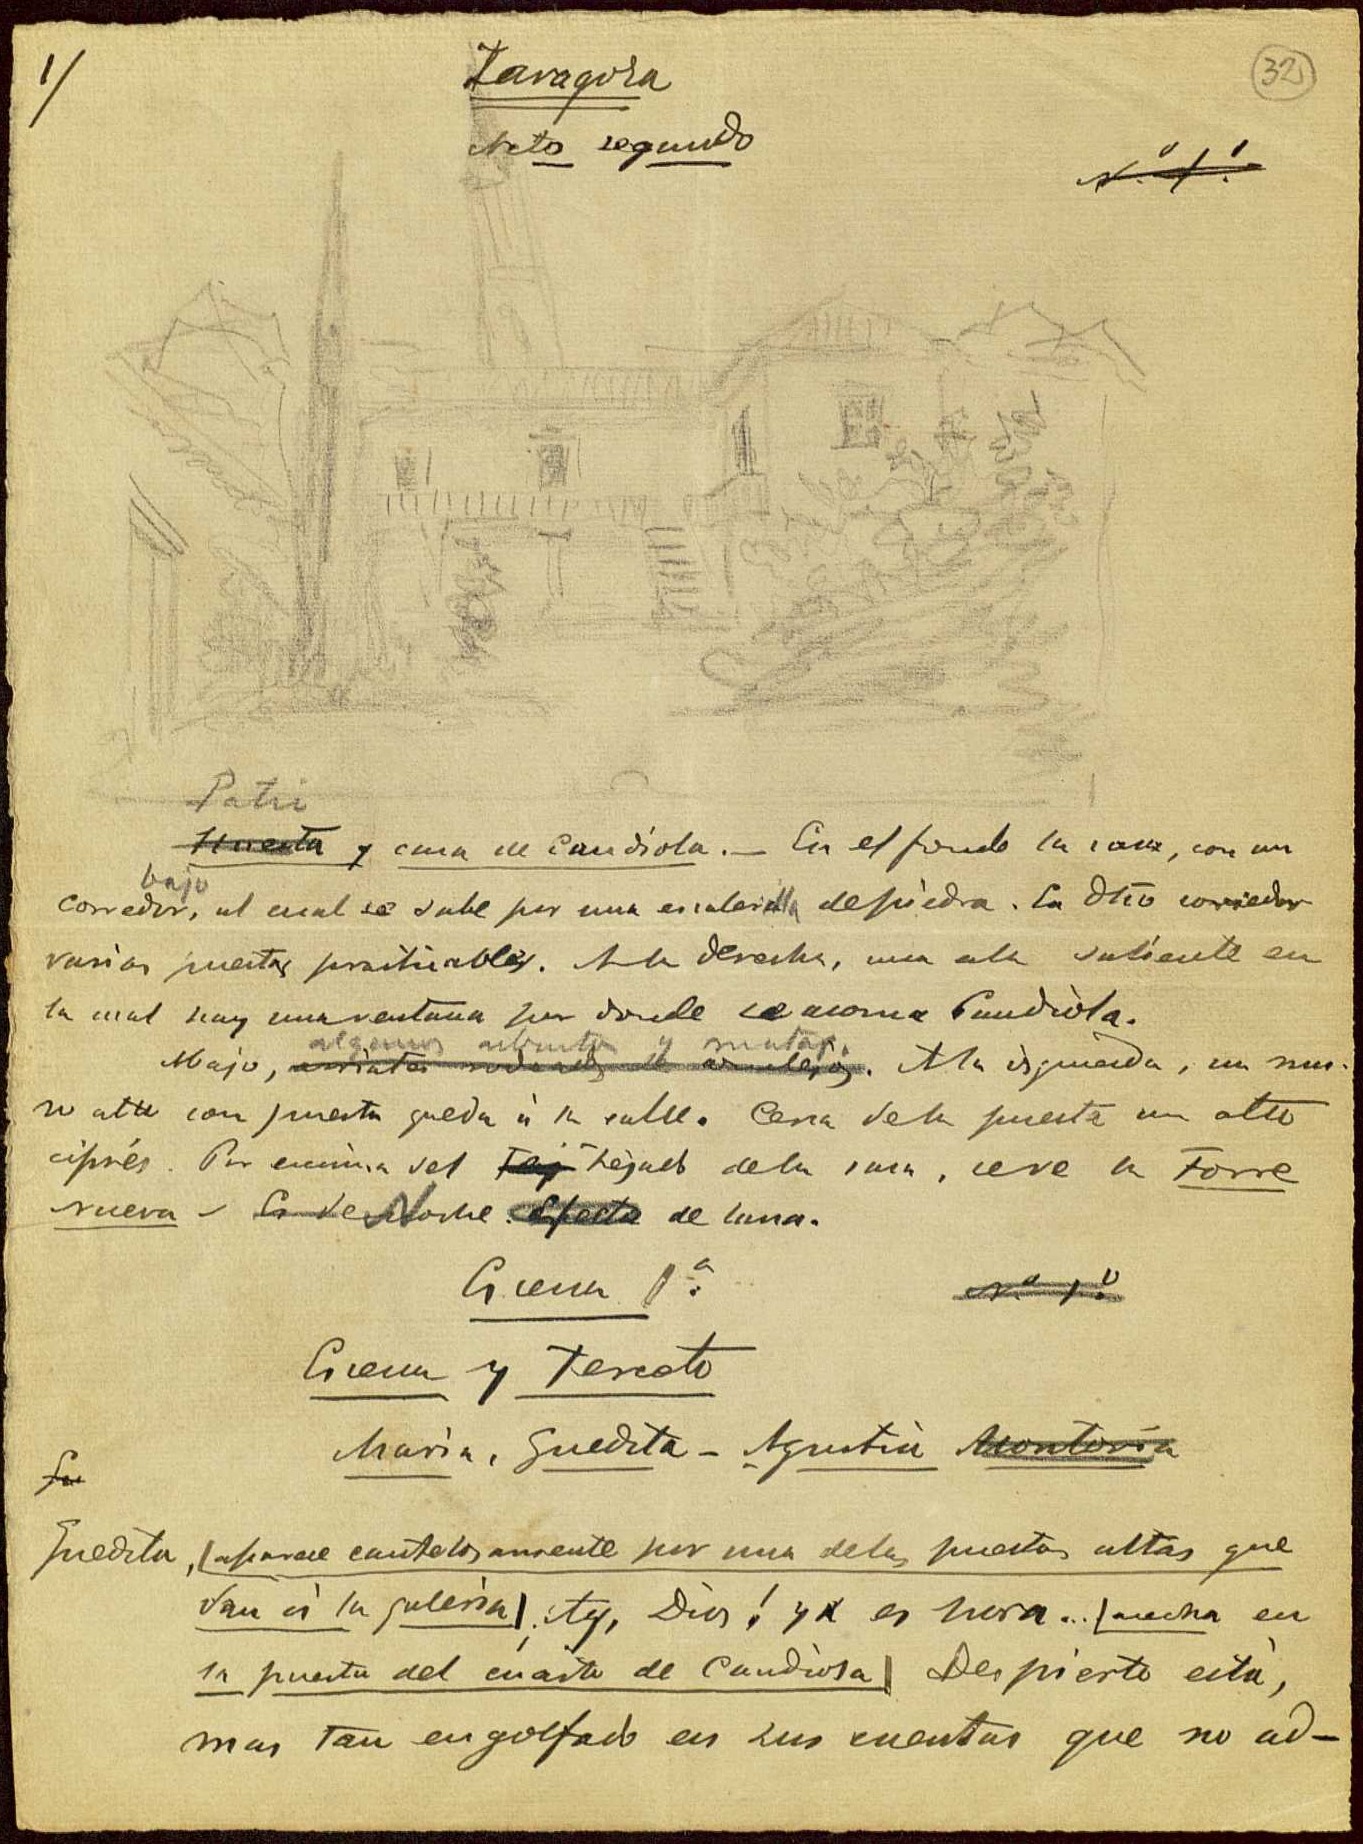 1/
32
Zaragoza
Acto segundo
N.º 1.º
Patio
Huerta y casa de Candiola. — En el fondo la casa, con un
bajo
corredor, al cual se sube por una escalerilla de piedra. En dho corredor
varias puertas practicables. A la derecha, una ala saliente en
la cual hay una ventana por donde se asoma Candiola.
algunos arbustos y matas.
Abajo, arriates rodeados de azulejos. A la izquierda, un mu-
ro alto con puerta que da á la calle. Cerca de la puerta un alto
ciprés. Por encima del Tej tejado de la casa, se ve la Torre
nueva — Es de Noche. Efecto de luna.
Escena 1.ª
N.º 1.º
Escena y Terceto
Maria, Guedita — Agustin Montoria
Gu
Guedita, (aparece cautelosamente por una de las puertas altas que
dan á la galeria). ¡Ay, Dios! ya es hora... (acecha en
la puerta del cuarto de Candiola) Despierto está,
mas tan engolfado en sus cuentas que no ad-